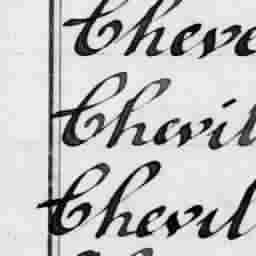 Cheve
Chevil
Chevil